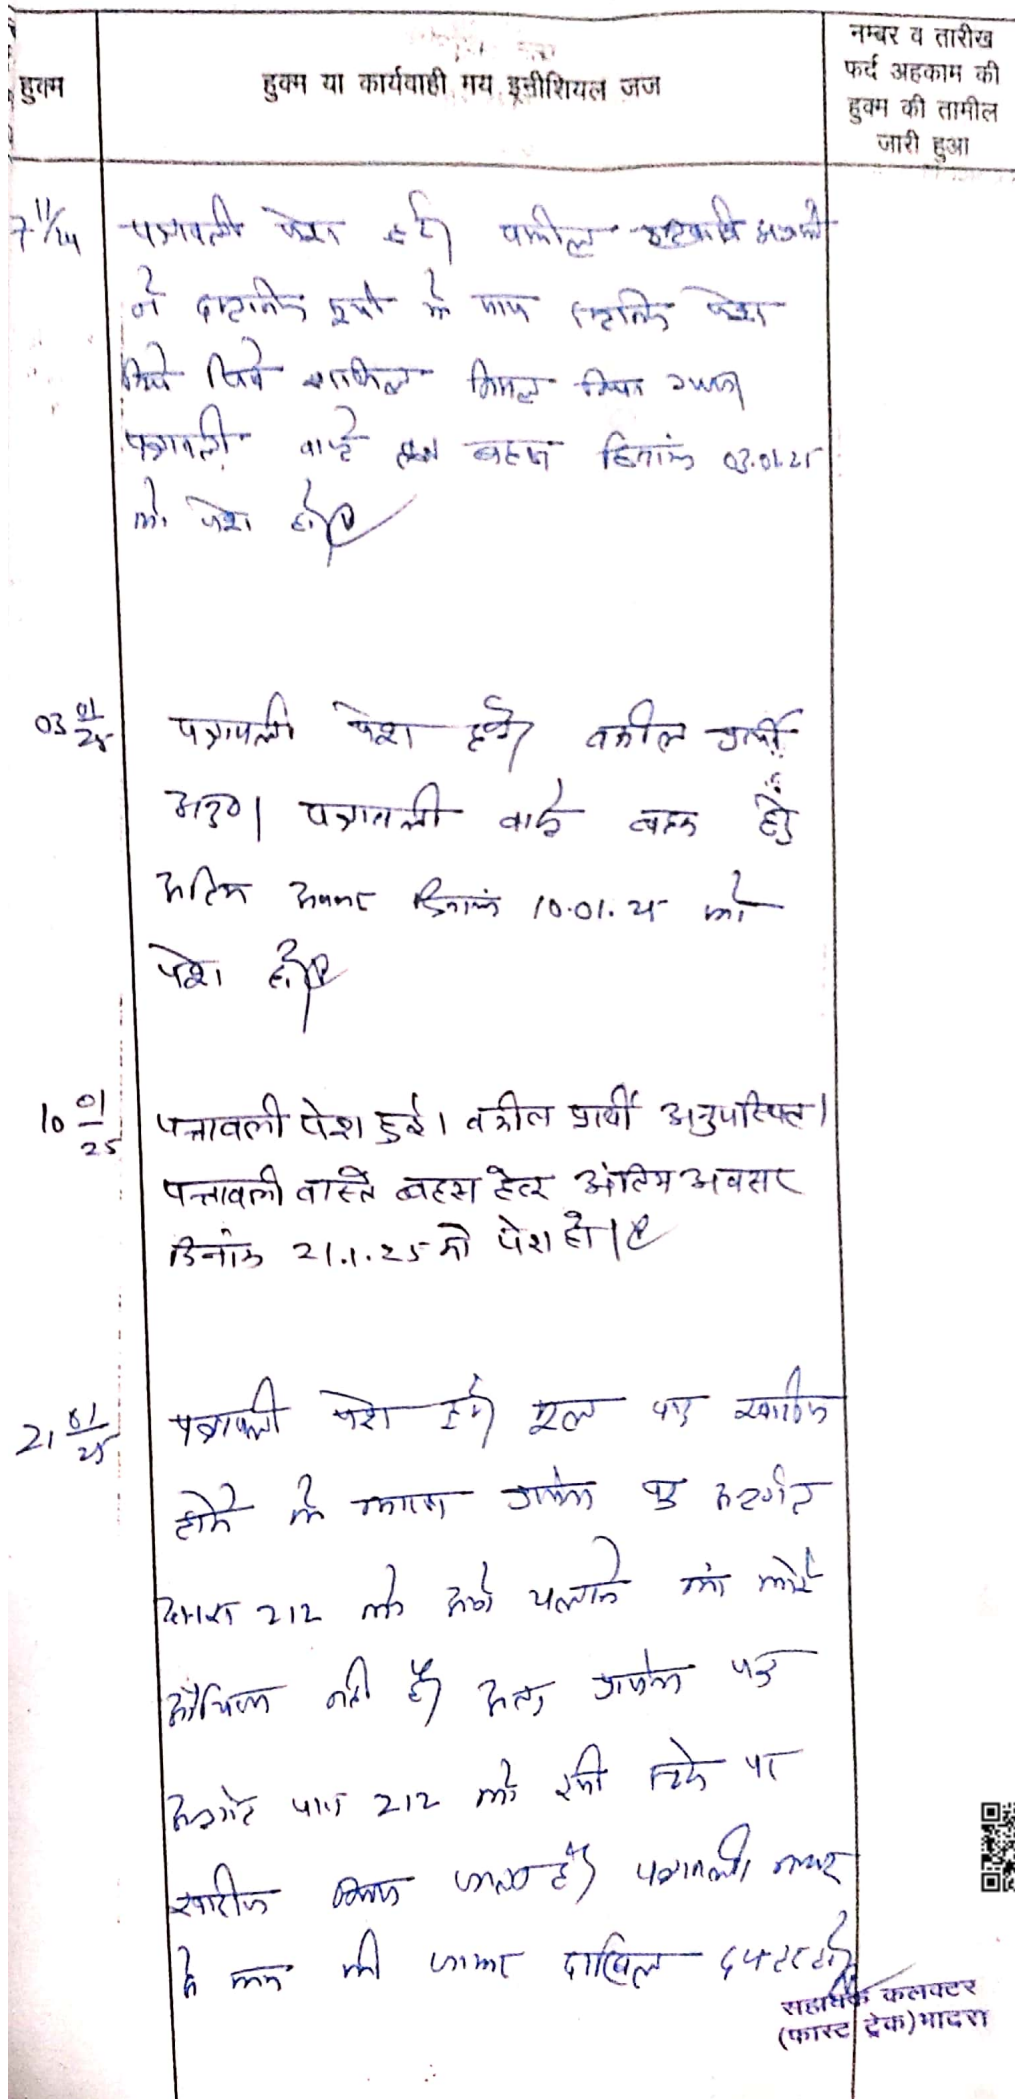 हुक्म
हुक्म या कार्यवाही मय इनीशियल जज
नम्बर व तारीख
फर्द अहकाम की
हुक्म की तामील
जारी हुआ
7 11/24 पत्रावली पेश हुई। वकील
ने के साथ पेश
किये जिसे शामिल मिसल किया गया।
पत्रावली वास्ते बहस दिनांक 03.01.25
को पेश हो।
03 01/25 पत्रावली पेश हुई। वकील प्रार्थी
अनु०। पत्रावली वास्ते बहस हेतु
अंतिम अवसर दिनांक 10.01.25 को
पेश हो।
10 01/25 पत्रावली पेश हुई। वकील प्रार्थी अनुपस्थित।
पत्रावली वास्ते बहस हेतु अंतिम अवसर
दिनांक 21.1.25 को पेश हो।
21 01/25 पत्रावली पेश हुई। मूल वाद खारीज
होने के कारण प्रार्थना पत्र अन्तर्गत
धारा 212 को आगे चलाने का कोई
औचित्य नही है। अतः प्रार्थना पत्र
अन्तर्गत धारा 212 को इसी स्टेज पर
खारीज किया जाता है। पत्रावली नम्बर
से कम की जाकर दाखिल दफ्तर हो।
सहायक कलक्टर
(फास्ट ट्रेक) भादरा